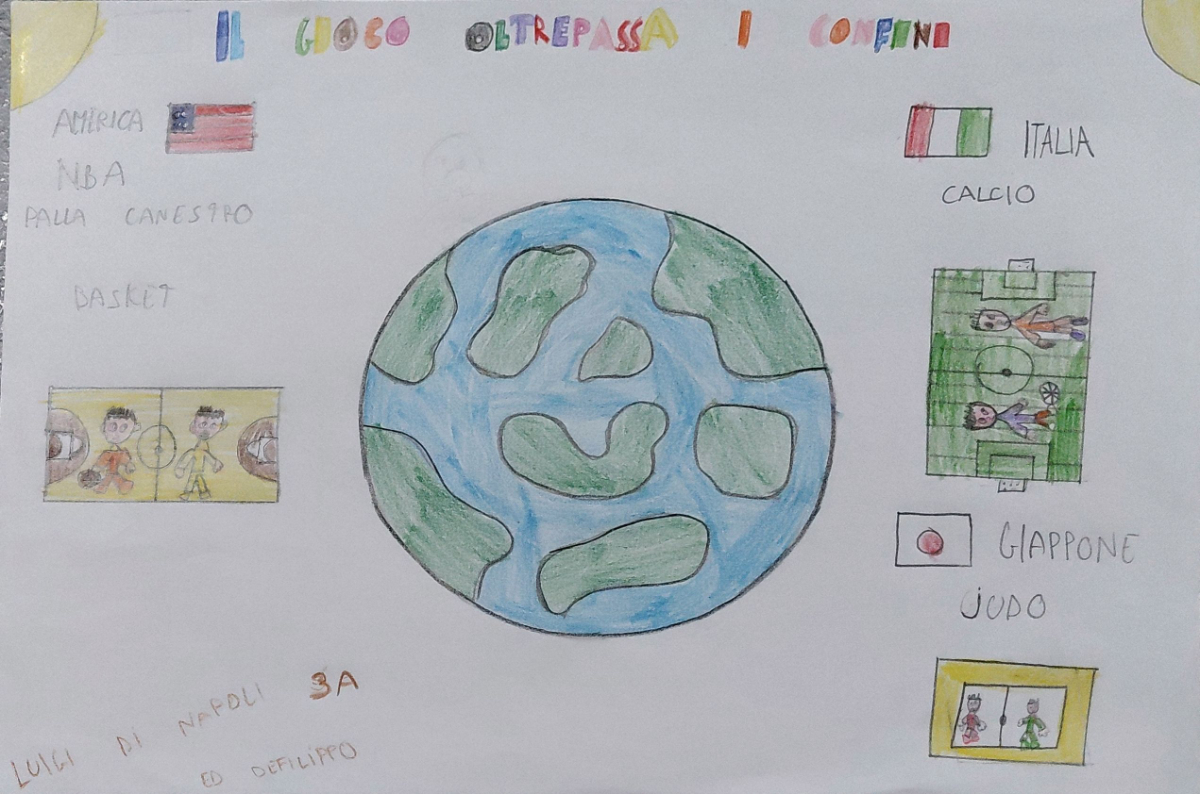 IL GIOCO OLTREPASSA I CONFINI
AMERICA
NBA
PALLA CANESTRO
BASKET
ITALIA
CALCIO
GIAPPONE
JUDO
LUIGI DI NAPOLI 3A
ED DEFILIPPO